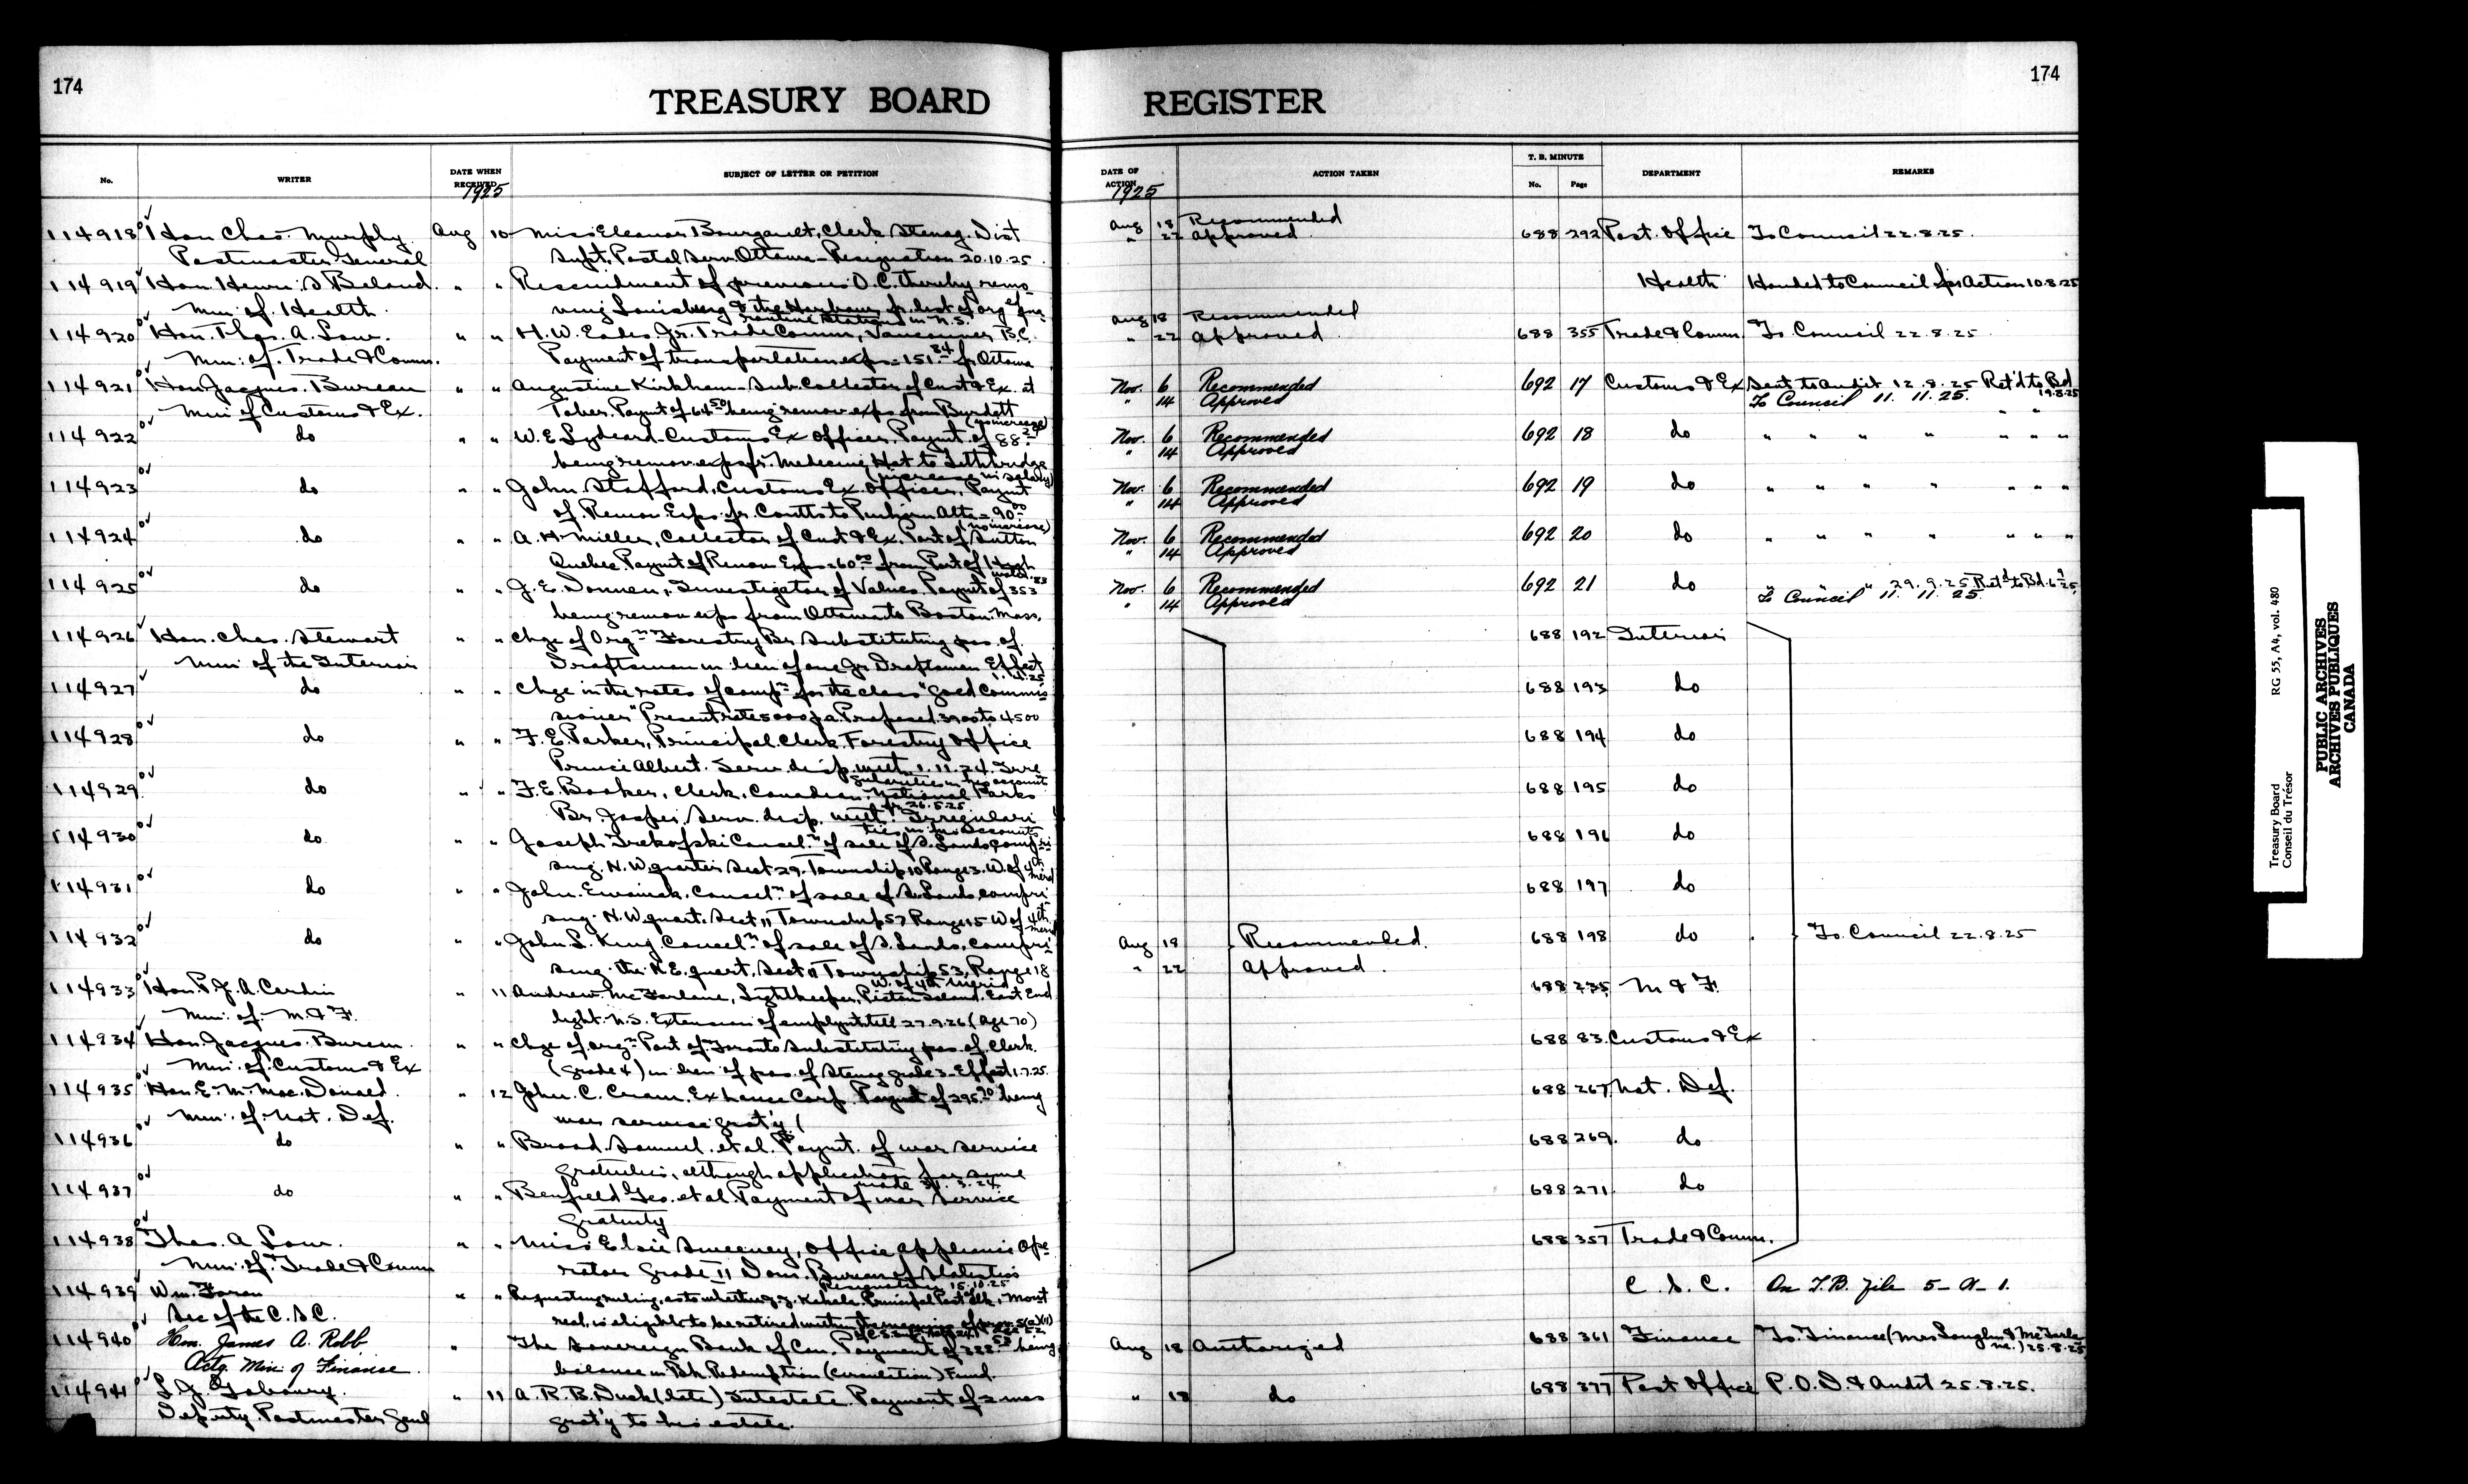 174
TREASURY BOARD REGISTER
174
No. WRITER DATE WHEN RECEIVED SUBJECT OF LETTER OR PETITION DATE OF ACTION ACTION TAKEN T. B. MINUTE No. Page DEPARTMENT REMARKS
1925 1925
114918 Hon Chas. Murphy Aug 10 Miss Eleanor Bourgault, Clerk Stenog. Dist Aug 18 Recommended 688 292 Post Office To Council 22.8.25.
Postmaster General Supt. Postal Serv. Ottawa - Resignation 20.10.25 " 22 Approved
114919 Hon. Henri S Beland " " Rescindment of previous O.C. thereby remo- Health Handed to Council for Action 10.8.25
Min. of Health ving Louisburg & the Harbour fr. list of org
114920 Hon. Thos. A. Low. " " H. W. Eades. Jr. Trade Comm, Vancouver B.C. Aug 18 Recommended 688 355 Trade & Comm. To Council 22.8.25
Min. of Trade & Comm. Payment of transportation exps = 151.84 fr Ottawa " 22 Approved
114921 Hon. Jacques Bureau " " Augustine Kirkham - Sub-Collector of Cust & Ex. at Nov. 6 Recommended 692 17 Customs & Ex Sent to Audit 12.8.25 Ret'd to Bd 19.8.25
Min. of Customs & Ex. Taber. Paymt of 64.50 being remov. exps from Burdett (no increase) " 14 Approved To Council 11.11.25.
114922 do " " W. E Lydeard. Customs Ex Officer. Paymt. of 88 Nov. 6 Recommended 692 18 do " " " " " " "
being remov. exps fr. Medicine Hat to Lethbridge (increase in salary) " 14 Approved
114923 do " " John Stafford, Customs Ex. Officer, Paymt Nov. 6 Recommended 692 19 do " " " " " " "
of Remov. Exps. fr. Coutts to Alta = 90.00 (no increase) " 14 Approved
114924 do " " A. H. Miller, Collector of Cust & Ex. Port of Sutton Nov. 6 Recommended 692 20 do " " " " " " "
Quebec Paymt of Remov Exps = 60.00 from Port of High Water " 14 Approved
114925 do " " J. E. Investigator of Values. Paymt of 353.83 Nov. 6 Recommended 692 21 do " " " 29.9.25 Ret'd to Bd.
being remov exps from Ottawa to Boston, Mass. " 14 Approved To Council 11.11.25.
114926 Hon. Chas. Stewart " " Chge of Orgn Forestry Br. Substituting pos. of 688 192 Interior
Min of the Interior Draftsman in lieu of one Jr Draftsman Effect 1.4.25
114927 do " " Chge in the rates of compn for the class "Goed Commis- 688 193 do
sioner" Present rate 5000 p.a. Proposed 3900 to 4500
114928 do " " F. E. Parker, Principal Clerk Forestry Office 688 194 do
Prince Albert. Serv. disp. with 1.11.24. Irre gularities in his account
114929 do " " F. E. Booker, Clerk, Canadian National Parks 688 195 do
Br. Jasper, Serv. disp. with fr. 26.5.25. Irregulari ties in his accounts
114930 do " " Joseph Cancel.n of sale of S. Lands, compri- 688 196 do
sing N. W quarter Sect 29. Township 10 Range 3. W. of 4th merid
114931 do " " John Cancel.n of sale of S. Lands, compri- 688 197 do
sing N. W. quart. Sect 11 Township 57 Range 15 W of 4th merid
114932 do " " John L. King Cancel.n of sale of S. Lands, compri- Aug 19 Recommended. 688 198 do To Council 22.8.25
sing the N. E. quart, Sect 11 Township 53, Range 18 W. of 4th Merid " 22 Approved.
114933 Hon. P. J. A. Cardin " 11 Andrew McFarlane, Lightkeeper, Pictou Island, East End 688 235 M & F.
Min. of M. & F. light. N.S. Extension of emplymt till 27.9.26 (Age 70)
114934 Hon. Jacques Bureau " " Chge of orgn Port of Toronto Substituting pos. of Clerk. 688 83. Customs & Ex
Min. of Customs & Ex (Grade 4) in lieu of pos. of Stenog grade 3 - Effect 1.7.25.
114935 Hon. E. M. MacDonald. " 12 John. C. Cram. Ex lance Corp. Paymt of 295.70 being 688 267 Nat. Def.
Min. of Nat. Def. war service grat'y (
114936 do " " Broad. Samuel. et al. Paymt. of war service 688 269. do
gratuities, although application for same made 31.3.24
114937 do " " Benfield Geo. et al. Payment of war Service 688 271 do
gratuity
114938 Thos. A Low. " " Miss Elsie Sweeney, Office Appliance Ope- 688 357 Trade & Comm.
Min. of Trade & Comm rator Grade II Dom. Bureau of Statistics Resignation 15.10.25
114939 Wm. Foran " " Requesting ruling, as to whether Principal Post Clk, Mont C. S. C. On T.B. file 5-A-1.
Sec of the C. S C. real, is eligible to be retired
114940 Hon. James A. Robb " The Sovereign Bank of Can. Payment of being Aug 18 Authorized 688 361 Finance To Finance
Actg. Min of Finance balance in Bk. Redemption (Circulation) Fund. 25.8.25
114941 L. J. Gaboury. " 11 A. R. B. Duck (late) Intestate. Payment of 2 mos " 18 do 688 377 Post Office P.O.D. & Audit 25.8.25.
Deputy Postmaster Genl grat'y to his estate.
Treasury Board
Conseil du Trésor
RG 55, A4, vol. 480
PUBLIC ARCHIVES
ARCHIVES PUBLIQUES
CANADA